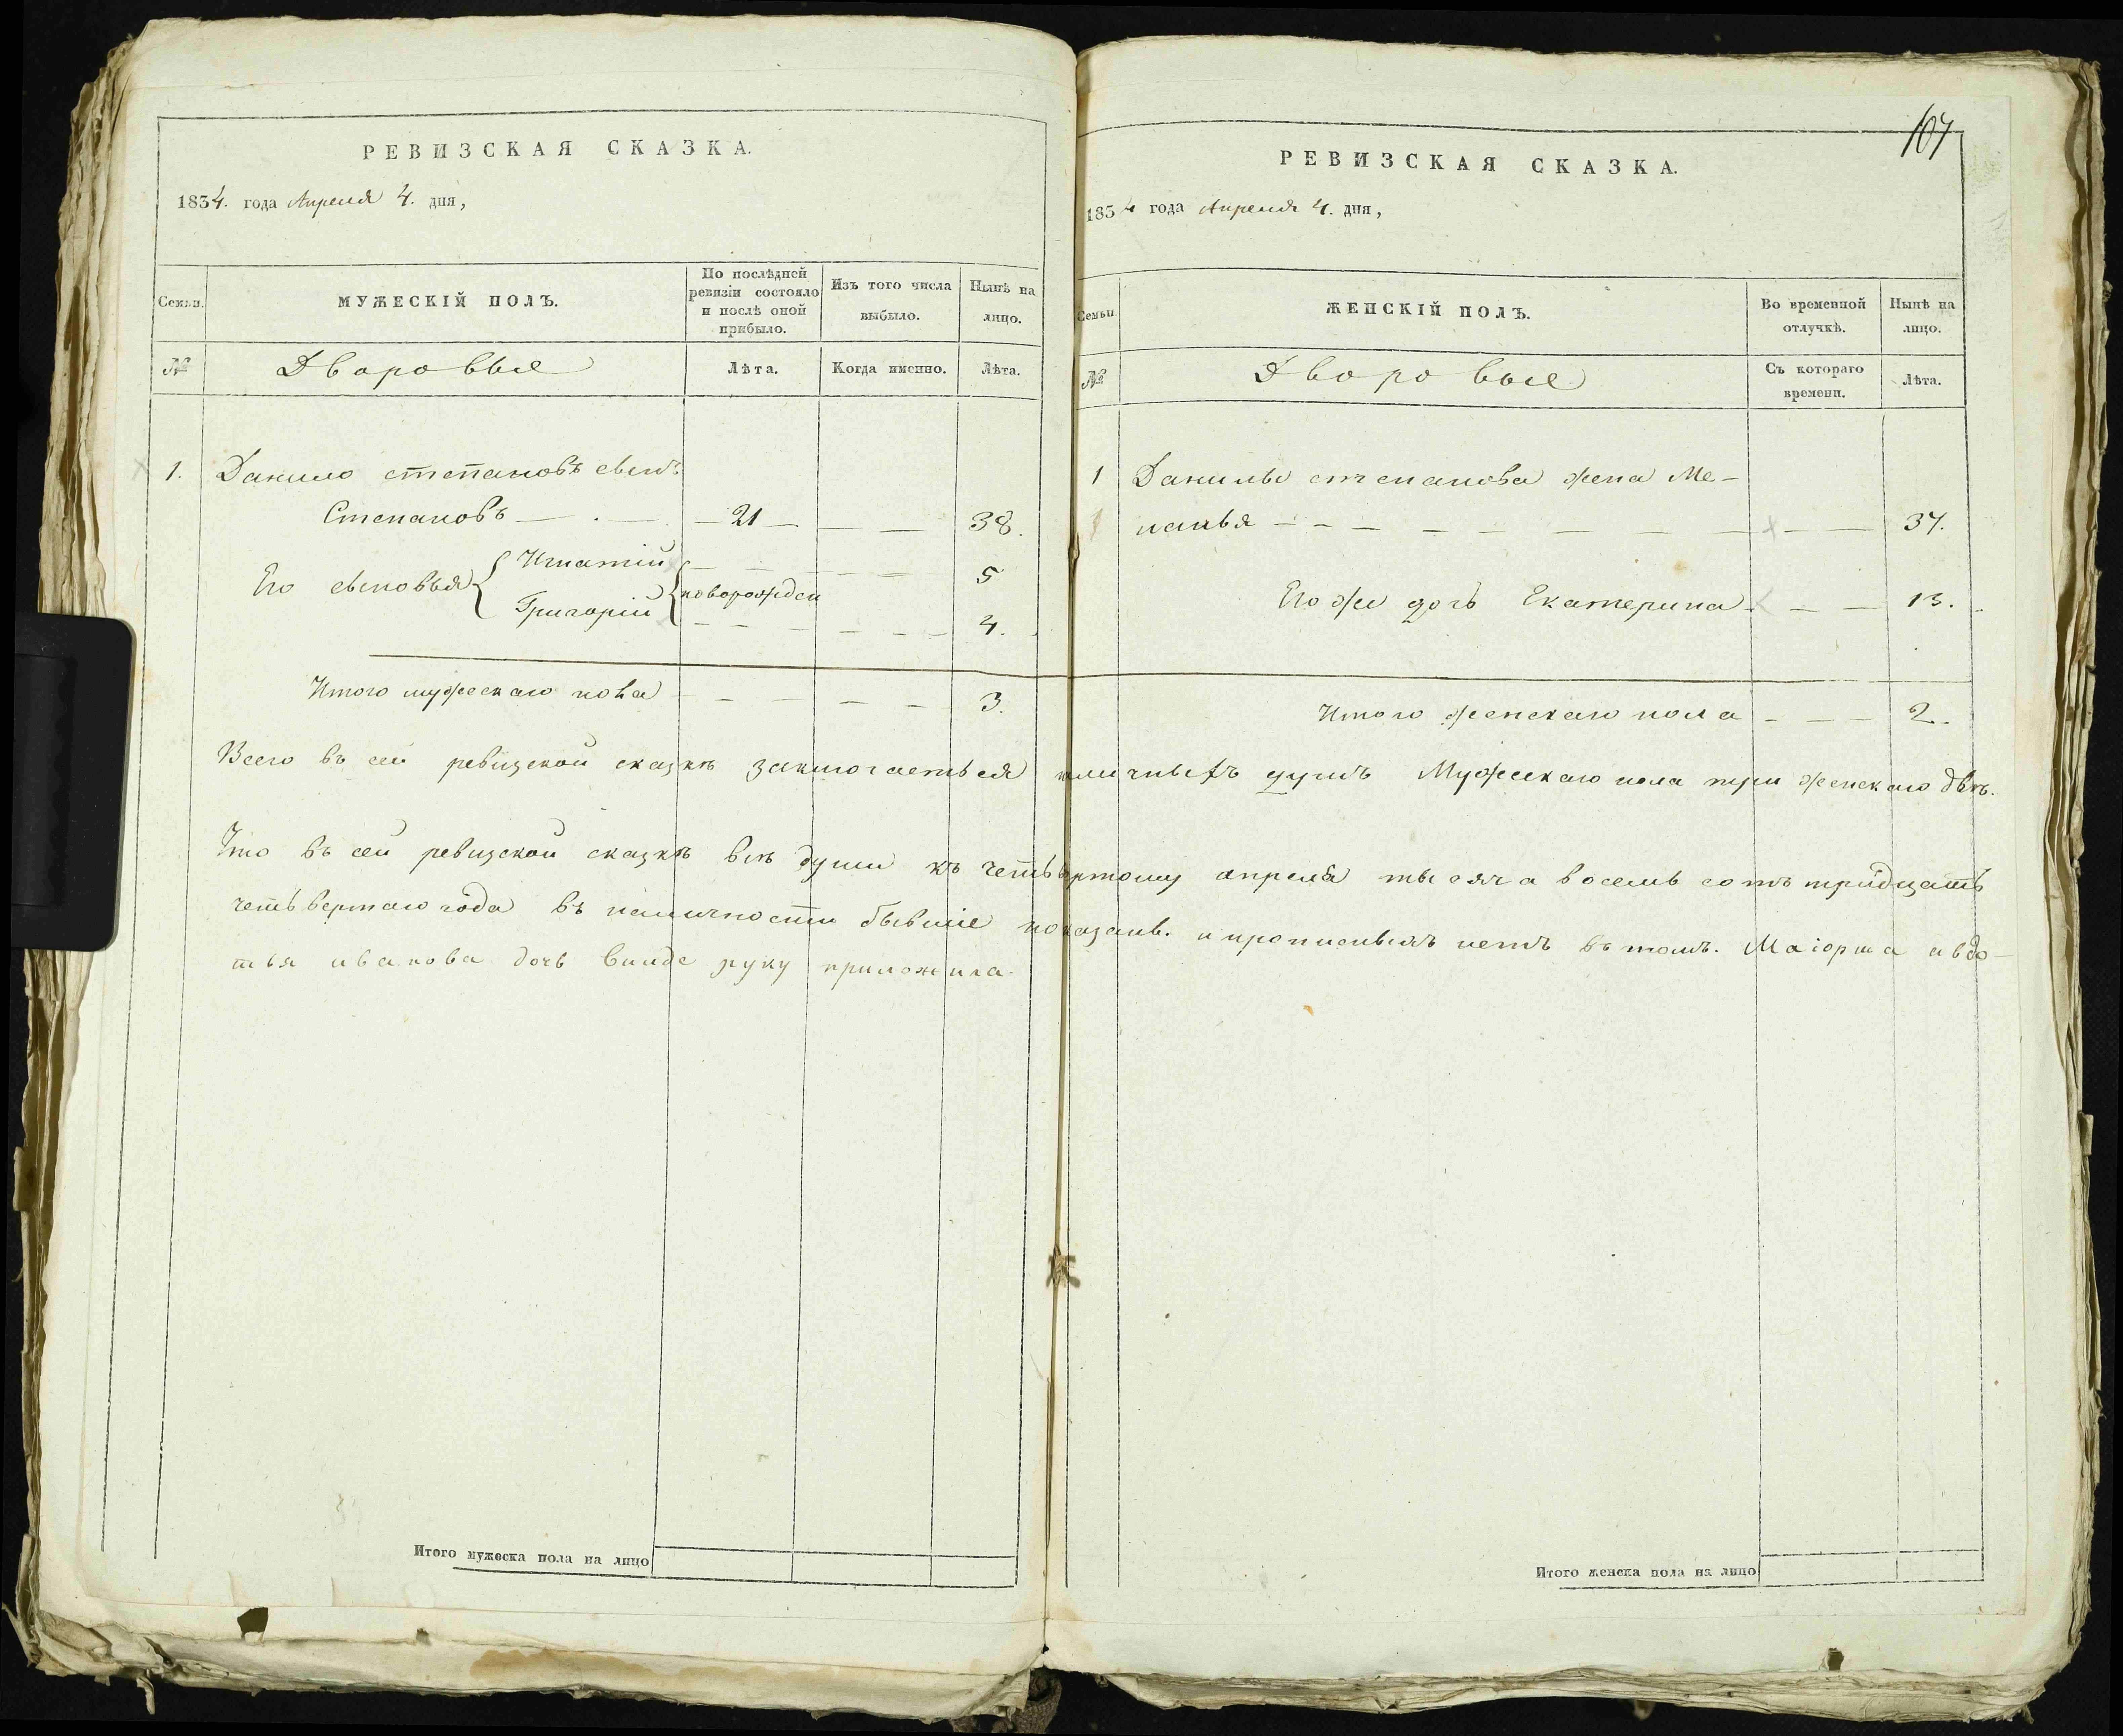 РЕВИЗСКАЯ СКАЗКА.
1834. года Апреля 4. дня,
Семьи.
МУЖЕСКІЙ ПОЛЪ.
По послѣдней ревизіи состояло и послѣ оной прибыло.
Изъ того числа выбыло.
Нынѣ на лицо.
№
Дворовыя
Лѣта.
Когда именно.
Лѣта.
1. Данило степановъ сынъ
Степановъ — 21 — 38.
Его сыновья { Игнатій новорожден 5
Григорій 4.
Итого мужескаго пола 3.
107
РЕВИЗСКАЯ СКАЗКА.
1834 года Апреля 4. дня,
Семьи
ЖЕНСКІЙ ПОЛЪ.
Во временной отлучкѣ.
Нынѣ на лицо.
№
Дворовые
Съ котораго времени.
Лѣта.
1 Данилы степанова жена Ме-
ланья 37.
Его же дочь Екатерина 13.
Итого женскаго пола 2.
Всего въ сей ревизской сказкѣ заключаеться наличныхъ душъ Мужескаго пола три женскаго двѣ.
Что въ сей ревизской сказкѣ всѣ души къ четьвертому апреля тысяча восемь сотъ тридцать
четьвертаго года въ наличности бывшіе показаны. и прописныхъ нетъ въ томъ. Маіорша авдо-
тья иванова дочь руку приложила.
Итого мужеска пола на лицо
Итого женска пола на лицо